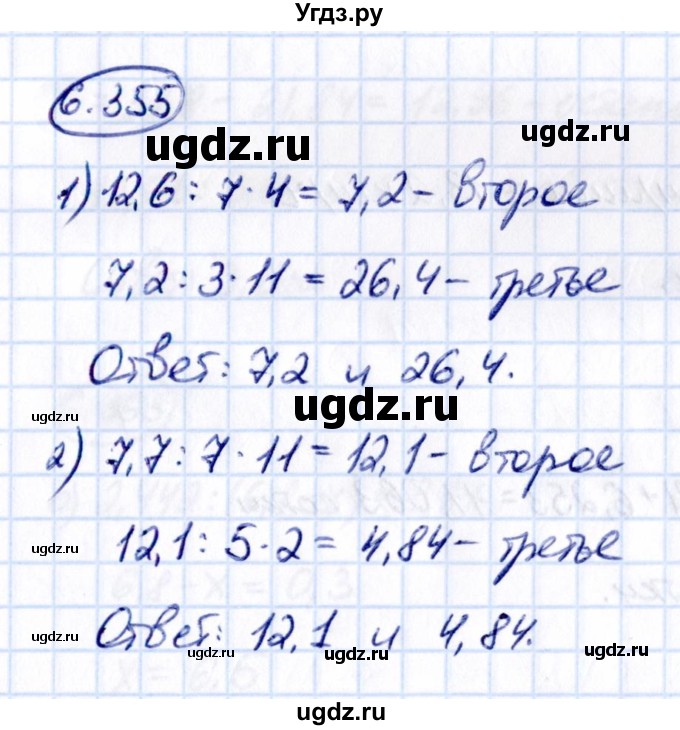 Угдз.ру
6.355
ugdz.ru ugdz.ru
1) 12,6 : 7 · 4 = 7,2 – второе
7,2 : 3 · 11 = 26,4 – третье
Ответ: 7,2 и 26,4.
ugdz.ru ugdz.ru
2) 7,7 : 7 · 11 = 12,1 – второе
12,1 : 5 · 2 = 4,84 – третье
ugdz.ru
Ответ: 12,1 и 4,84.
ugdz.ru ugdz.ru ugdz.ru
ugdz.ru ugdz.ru
ugdz.ru